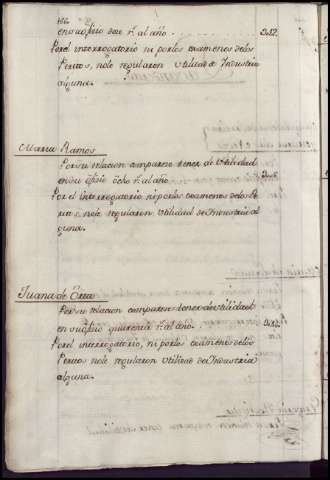 en su ofizio doze r.s al año
Por el interrogatorio ni por los examenes de los
Peritos, nole regularon utilidad de Industria
alguna.
Maria Ramos
Por su relacion comparece tener de utilidad
en su ofizio ocho r.s al año
Por el interrogatorio ni por los examenes de los Pe
ritos, nole regularon utilidad de Industria al
guna.
Juana de Orta
Por su relacion comparece tener de utilidad
en su ofizio quarenta r.s al año
Por el interrogatorio, ni por los examenes de los
Peritos nole regularon utilidad de Industria
alguna.